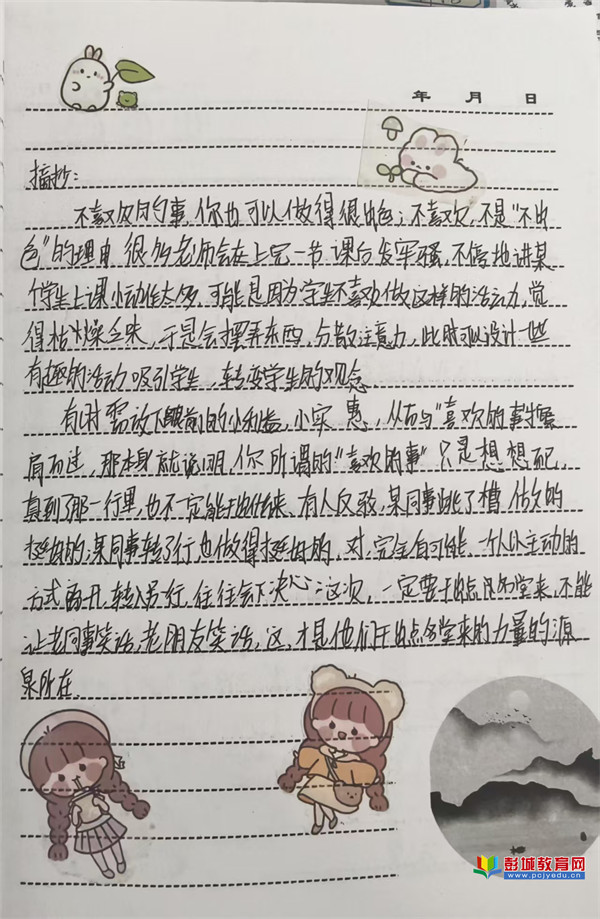 年 月 日
摘抄:
不喜欢的事,你也可以做得很出色;不喜欢,不是"不出
色"的理由 很多老师会在上完一节课后发牢骚,不停地讲某
个学生上课小动作太多,可能是因为学生不喜欢做这样的活动,觉
得枯燥乏味,于是会摆弄东西,分散注意力,此时可以设计一些
有趣的活动吸引学生,转变学生的观念
有时需放下眼前的小利益,小实惠,从而与"喜欢的事"擦
肩而过,那本身就说明,你所谓的"喜欢的事"只是想想而已,
真到了那一行里,也不一定能干出什么来、有人反驳,某同事跳了槽,做的
挺好的;某同事转了行也做得挺好的,对,完全有可能,一个人以主动的
方式离开,转入另行,往往会下决心:这次,一定要干出点名堂来,不能
让老同事笑话,老朋友笑话,这,才是他们干出点名堂来的力量的源
泉所在.
彭城教育网
www.pcjyedu.cn